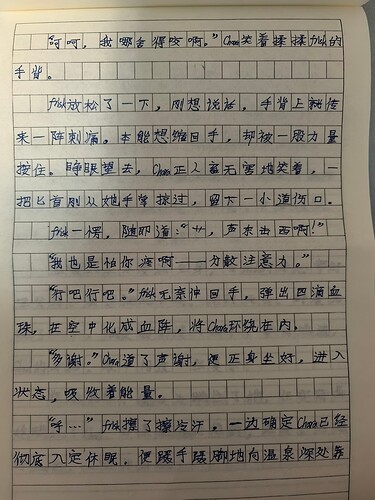 “呵呵，我哪舍得咬啊。”Chara笑着揉揉frisk的
手背。
frisk放松了一下，刚想说话，手背上就传
来一阵刺痛。本能想缩回手，却被一股力量
按住。睁眼望去，Chara正人畜无害地笑着，一
把匕首刚从她手掌掠过，留下一小道伤口。
frisk一愣，随即道：“艹，声东击西啊！”
“我也是怕你疼啊——分散注意力。”
“行吧行吧。”frisk无奈伸回手，弹出四滴血
珠，在空中化成血阵，将Chara环绕在内。
“多谢。”Chara道了声谢，便正身坐好，进入
状态，吸收着能量。
“呼…”frisk擦了擦冷汗。一边确定Chara已经
彻底入定休眠，便蹑手蹑脚地向温泉深处靠